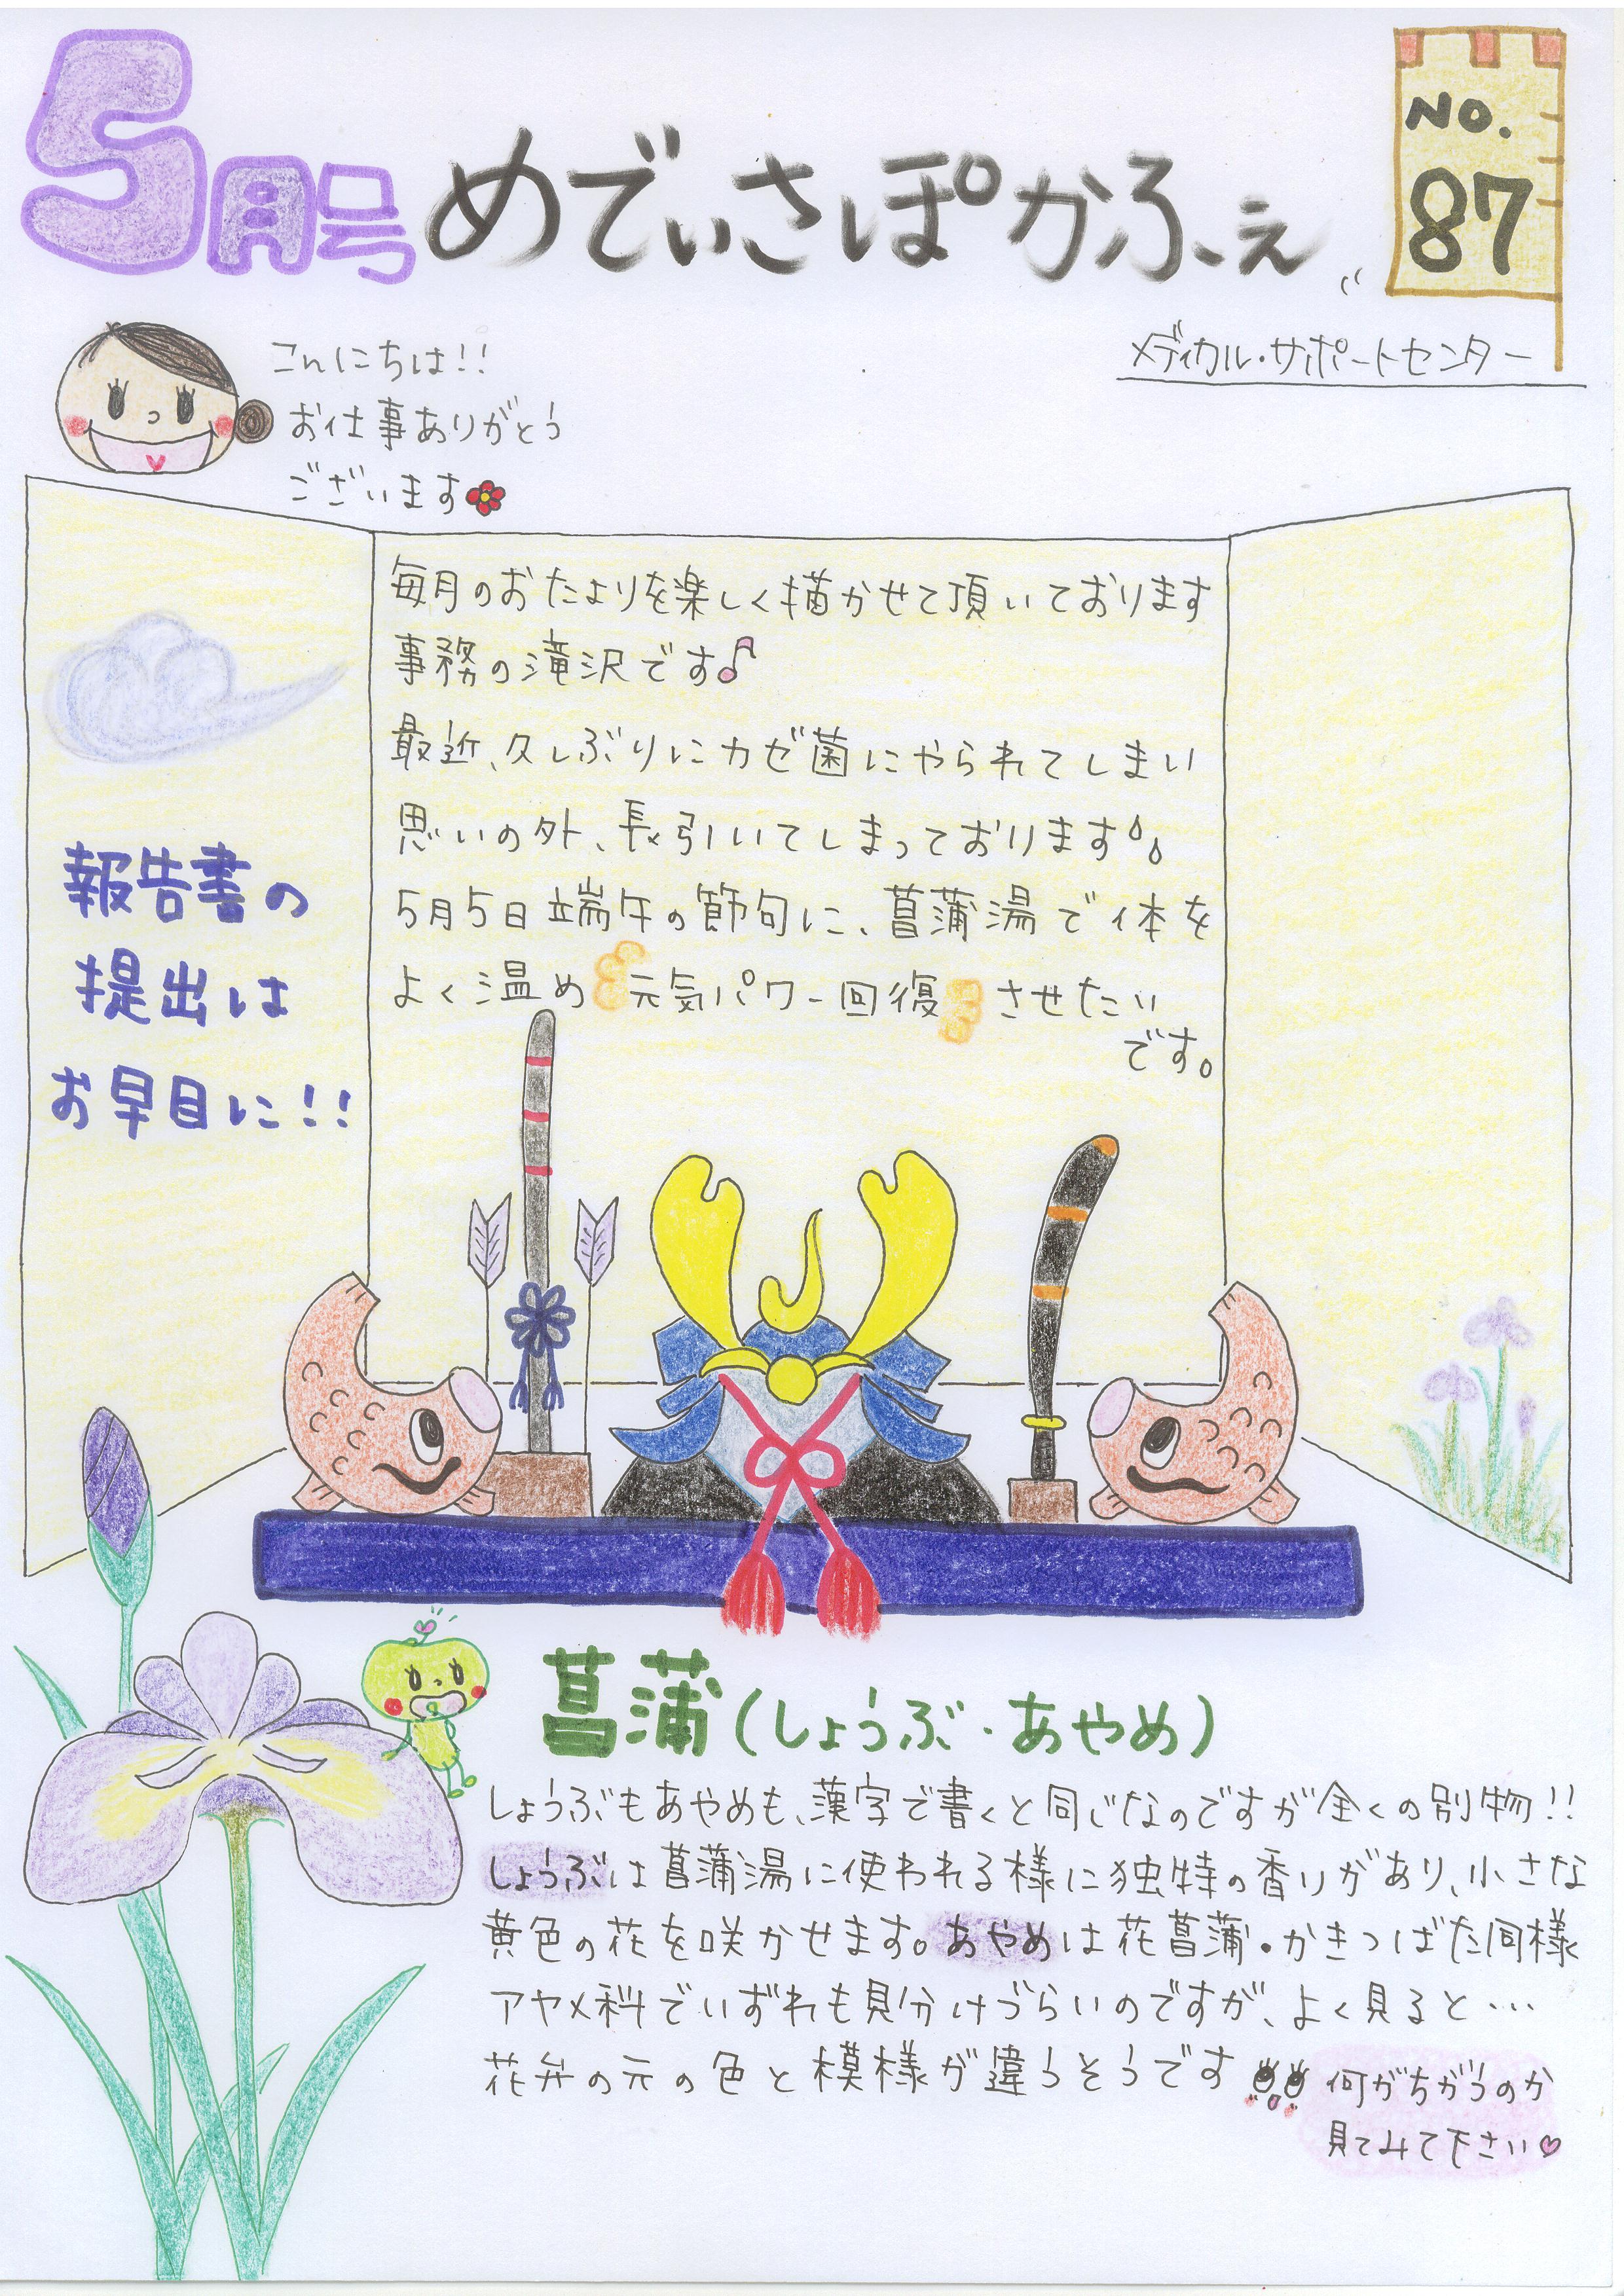 5月号 めでぃさぽかふぇ
NO.
87
メディカル・サポートセンター
こんにちは!!
お仕事ありがとう
ございます
毎月のおたよりを楽しく描かせて頂いております
事務の滝沢です♪
最近、久しぶりにカゼ菌にやられてしまい
思いの外、長引いてしまっております
5月5日端午の節句に、菖蒲湯で体を
よく温め元気パワー回復させたい
です。
報告書の
提出は
お早目に!!
菖蒲(しょうぶ・あやめ)
しょうぶもあやめも、漢字で書くと同じなのですが全くの別物!!
しょうぶは菖蒲湯に使われる様に独特の香りがあり、小さな
黄色の花を咲かせます。あやめは花菖蒲・かきつばた同様
アヤメ科でいずれも見分けづらいのですが、よく見ると…
花弁の元の色と模様が違うそうです
何がちがうのか
見てみて下さい♡